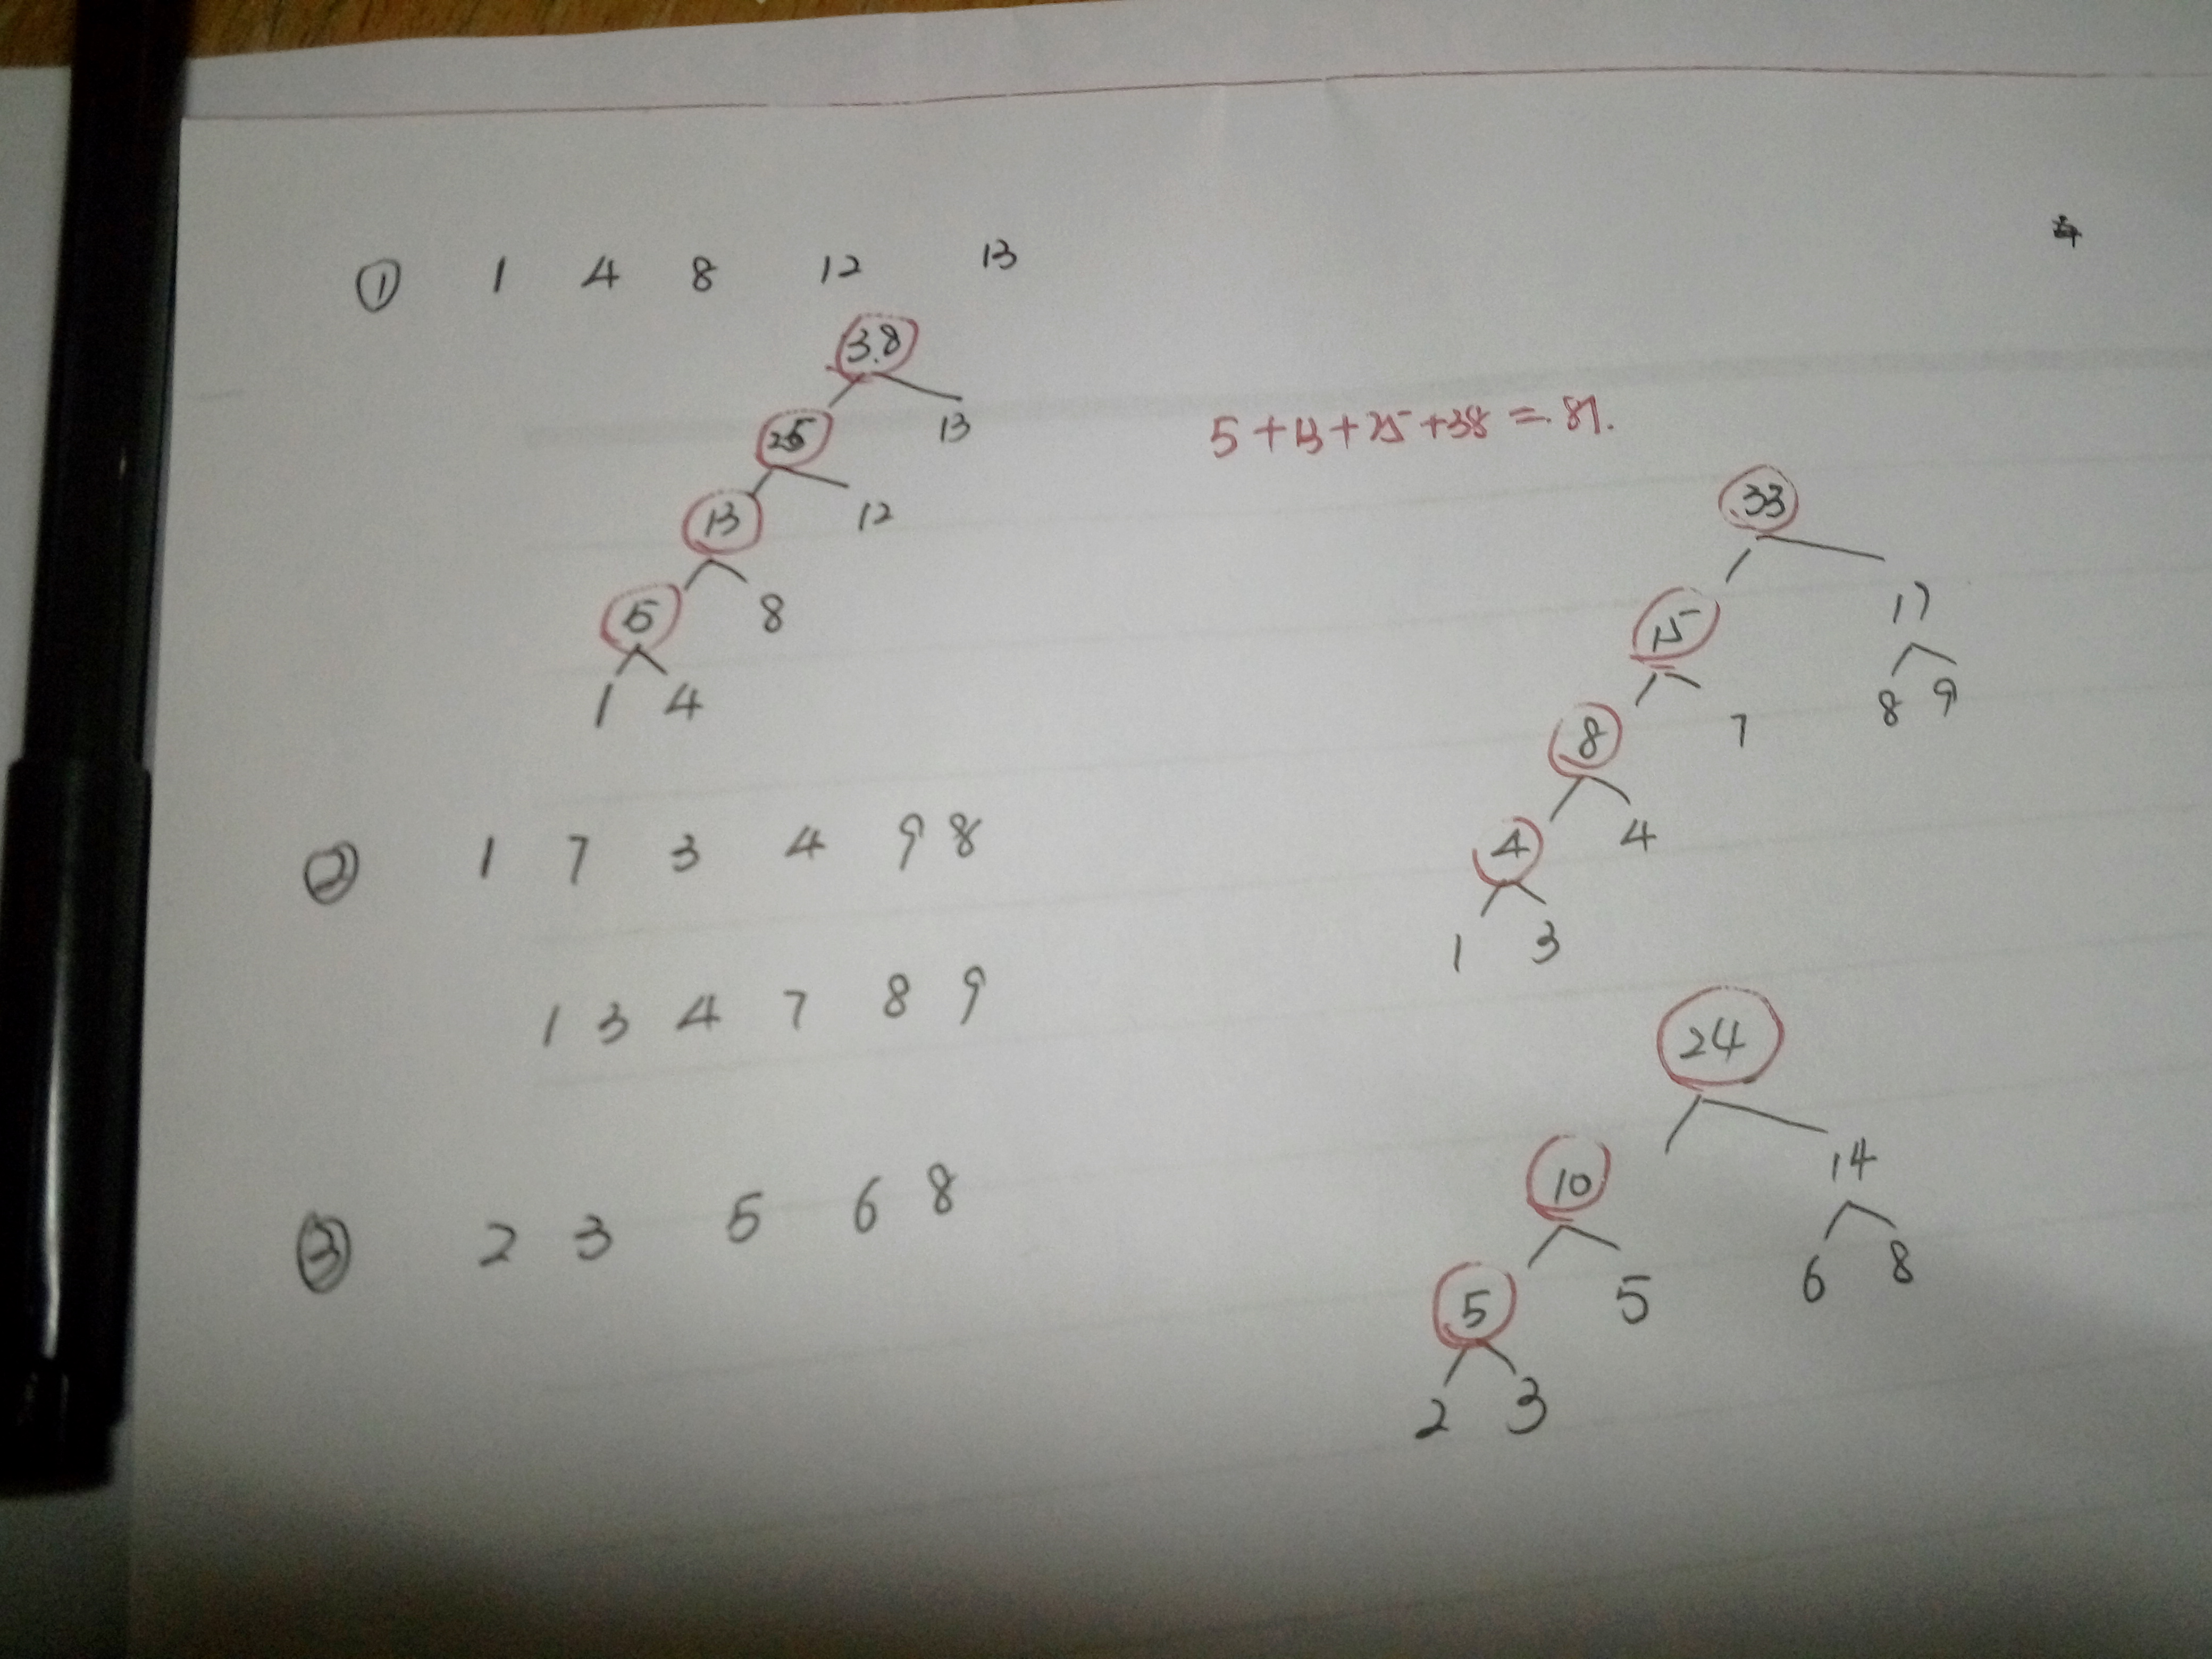 ① 1 4 8 12 13
38
25 13
13 12
5 8
1 4
5+13+25+38=81.
33
15 17
8 7 8 9
4 4
1 3
② 1 7 3 4 9 8
1 3 4 7 8 9
③ 2 3 5 6 8
24
10 14
5 5 6 8
2 3